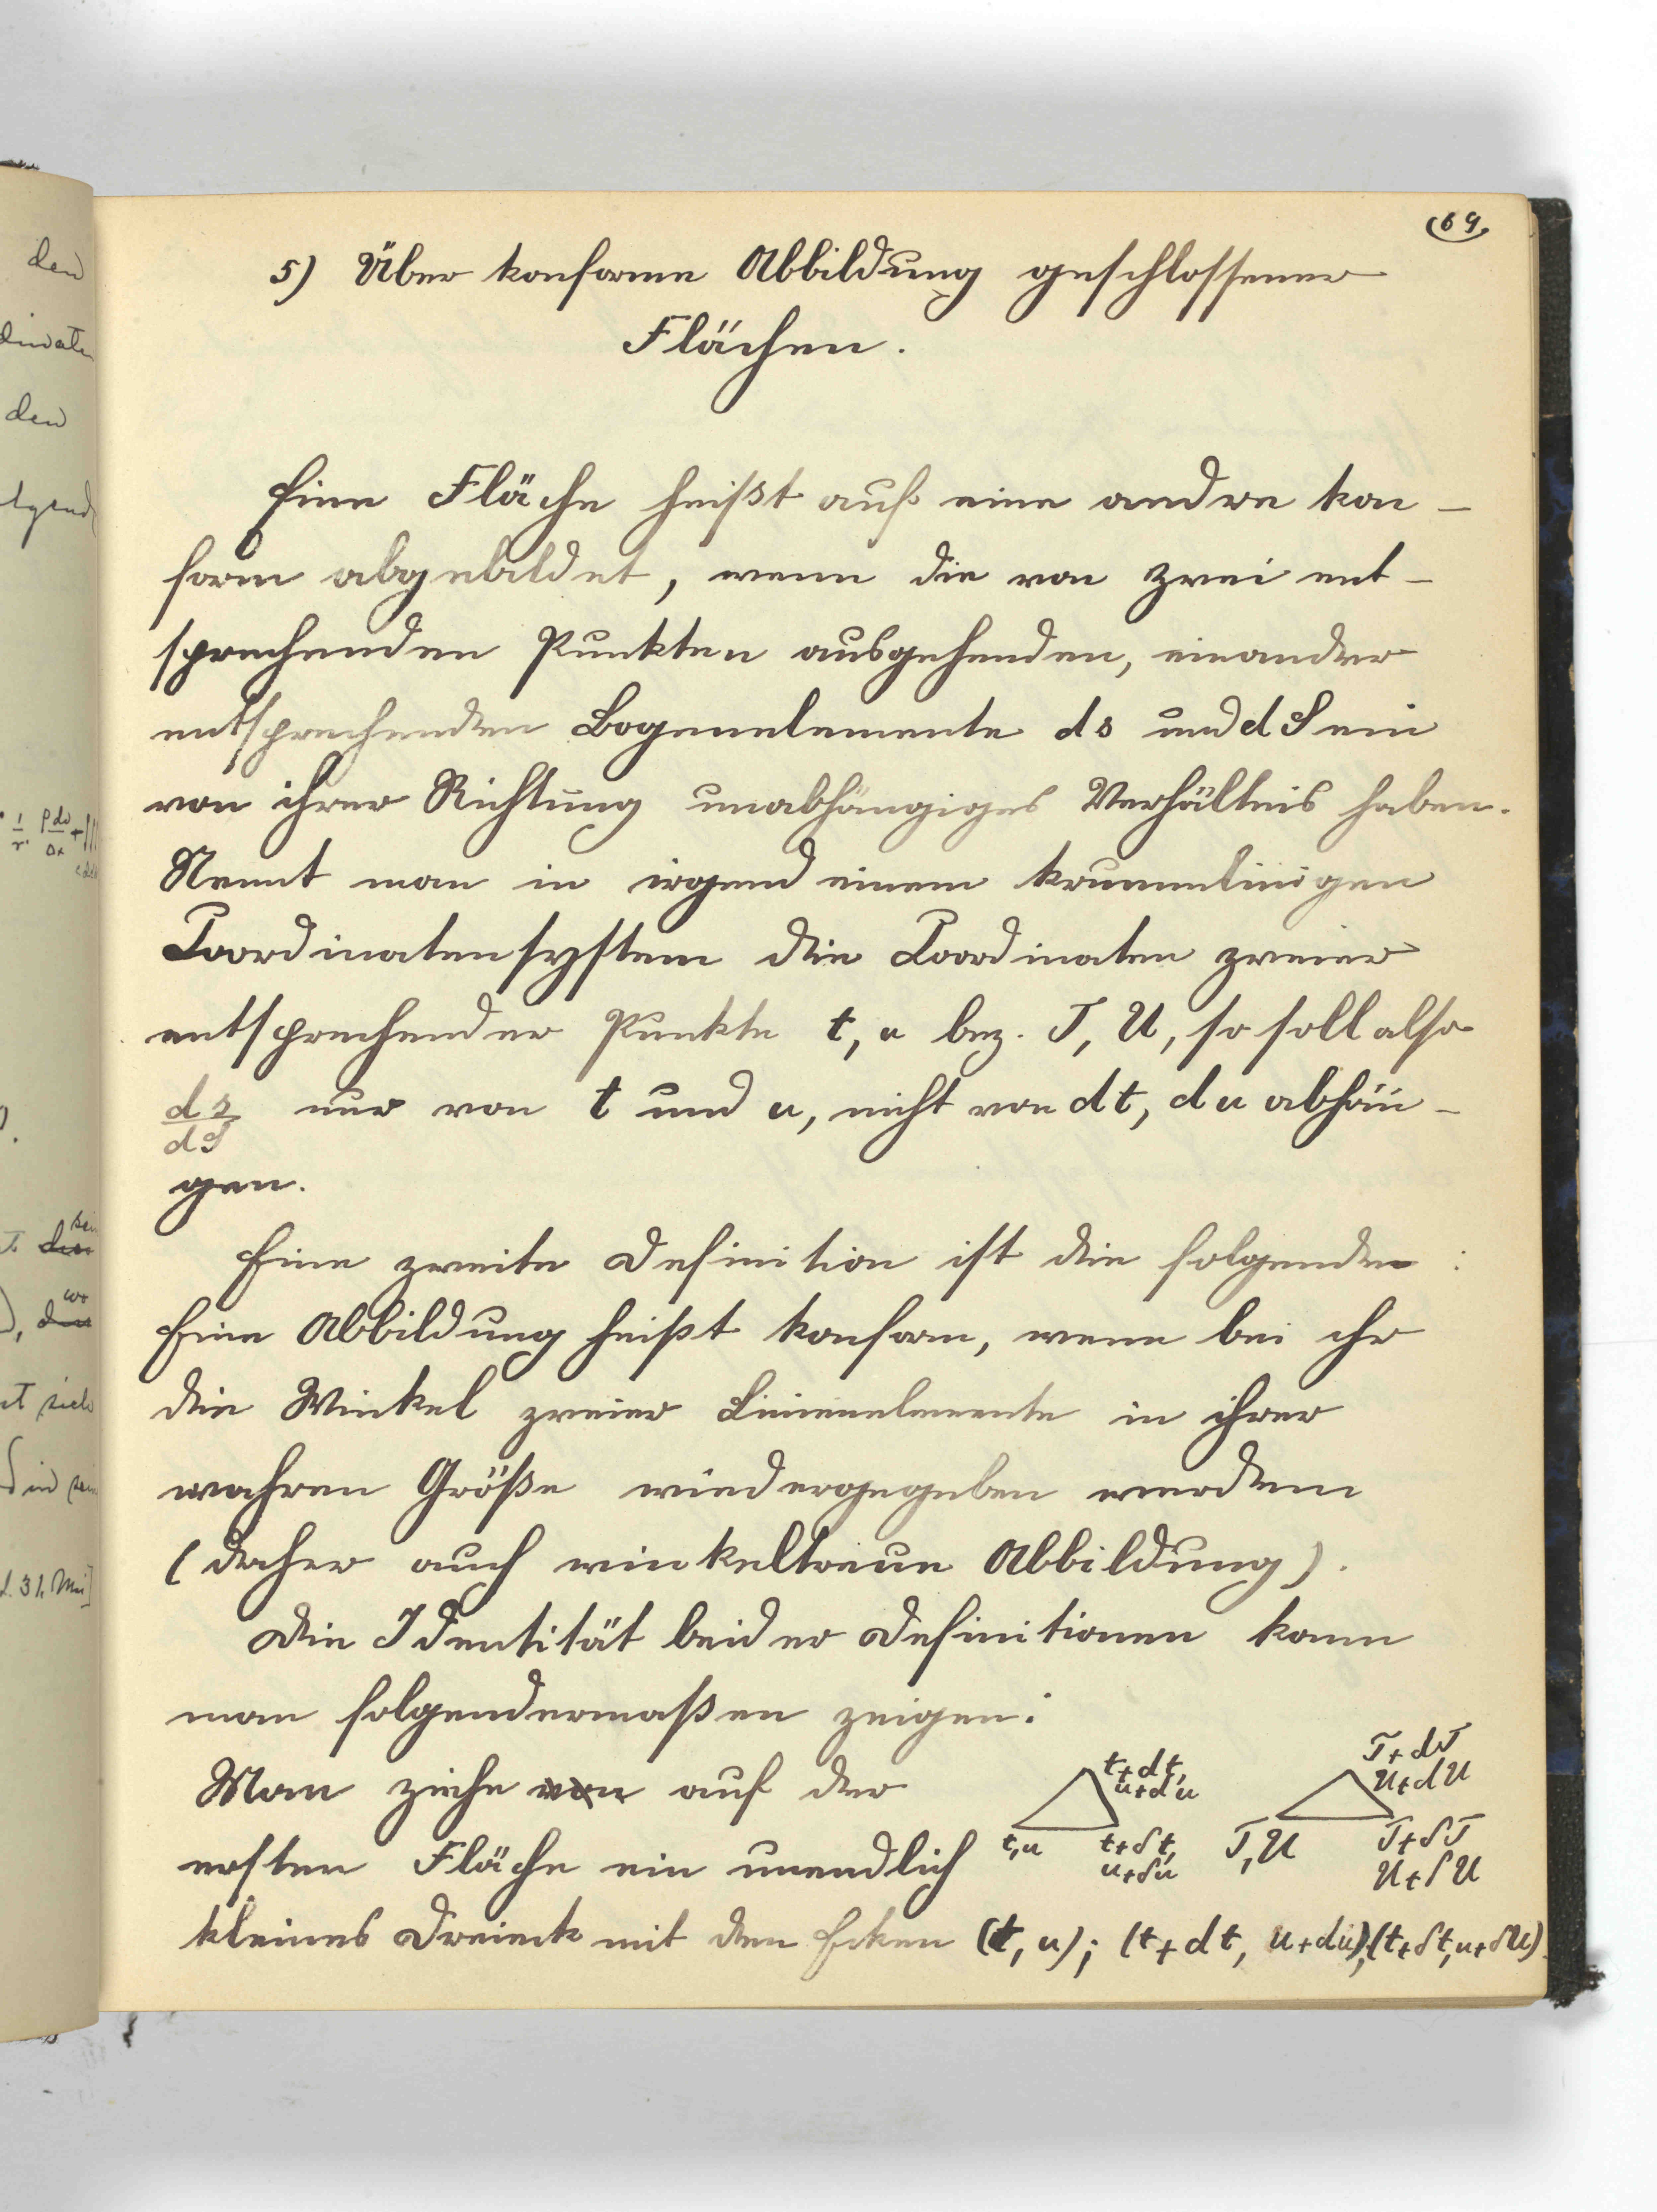 den
den
d. 31. Mai]
69
5) Über konforme Abbildung geschlossener
Flächen.
Eine Fläche heißt auf eine andre kon-
form abgebildet, wenn die von zwei ent-
sprechenden Punkten ausgehenden, einander
entsprechenden Bogenelemente ds und dS ein
von ihrer Richtung unabhängiges Verhältnis haben.
Nennt man in irgend einem krummlinigen
Coordinatensystem die Coordinaten zweier
entsprechender Punkte t, u bez. T, U, so soll also
ds/dS nur von t und u, nicht von dt, du abhän-
gen.
Eine zweite Definition ist die folgende:
Eine Abbildung heißt konform, wenn bei ihr
die Winkel zweier Linienelemente in ihrer
wahren Größe wiedergegeben werden
(daher auch winkeltreue Abbildung).
Die Identität beider Definitionen kann
man folgendermaßen zeigen:
Man ziehe von auf der
ersten Fläche ein unendlich
t+dt,
u+du
t,u
t+δt,
u+δu
T+dT
U+dU
T,U
T+δT
U+δU
kleines Dreieck mit den Ecken (t, u); (t+dt, u+du); (t+δt, u+δu)